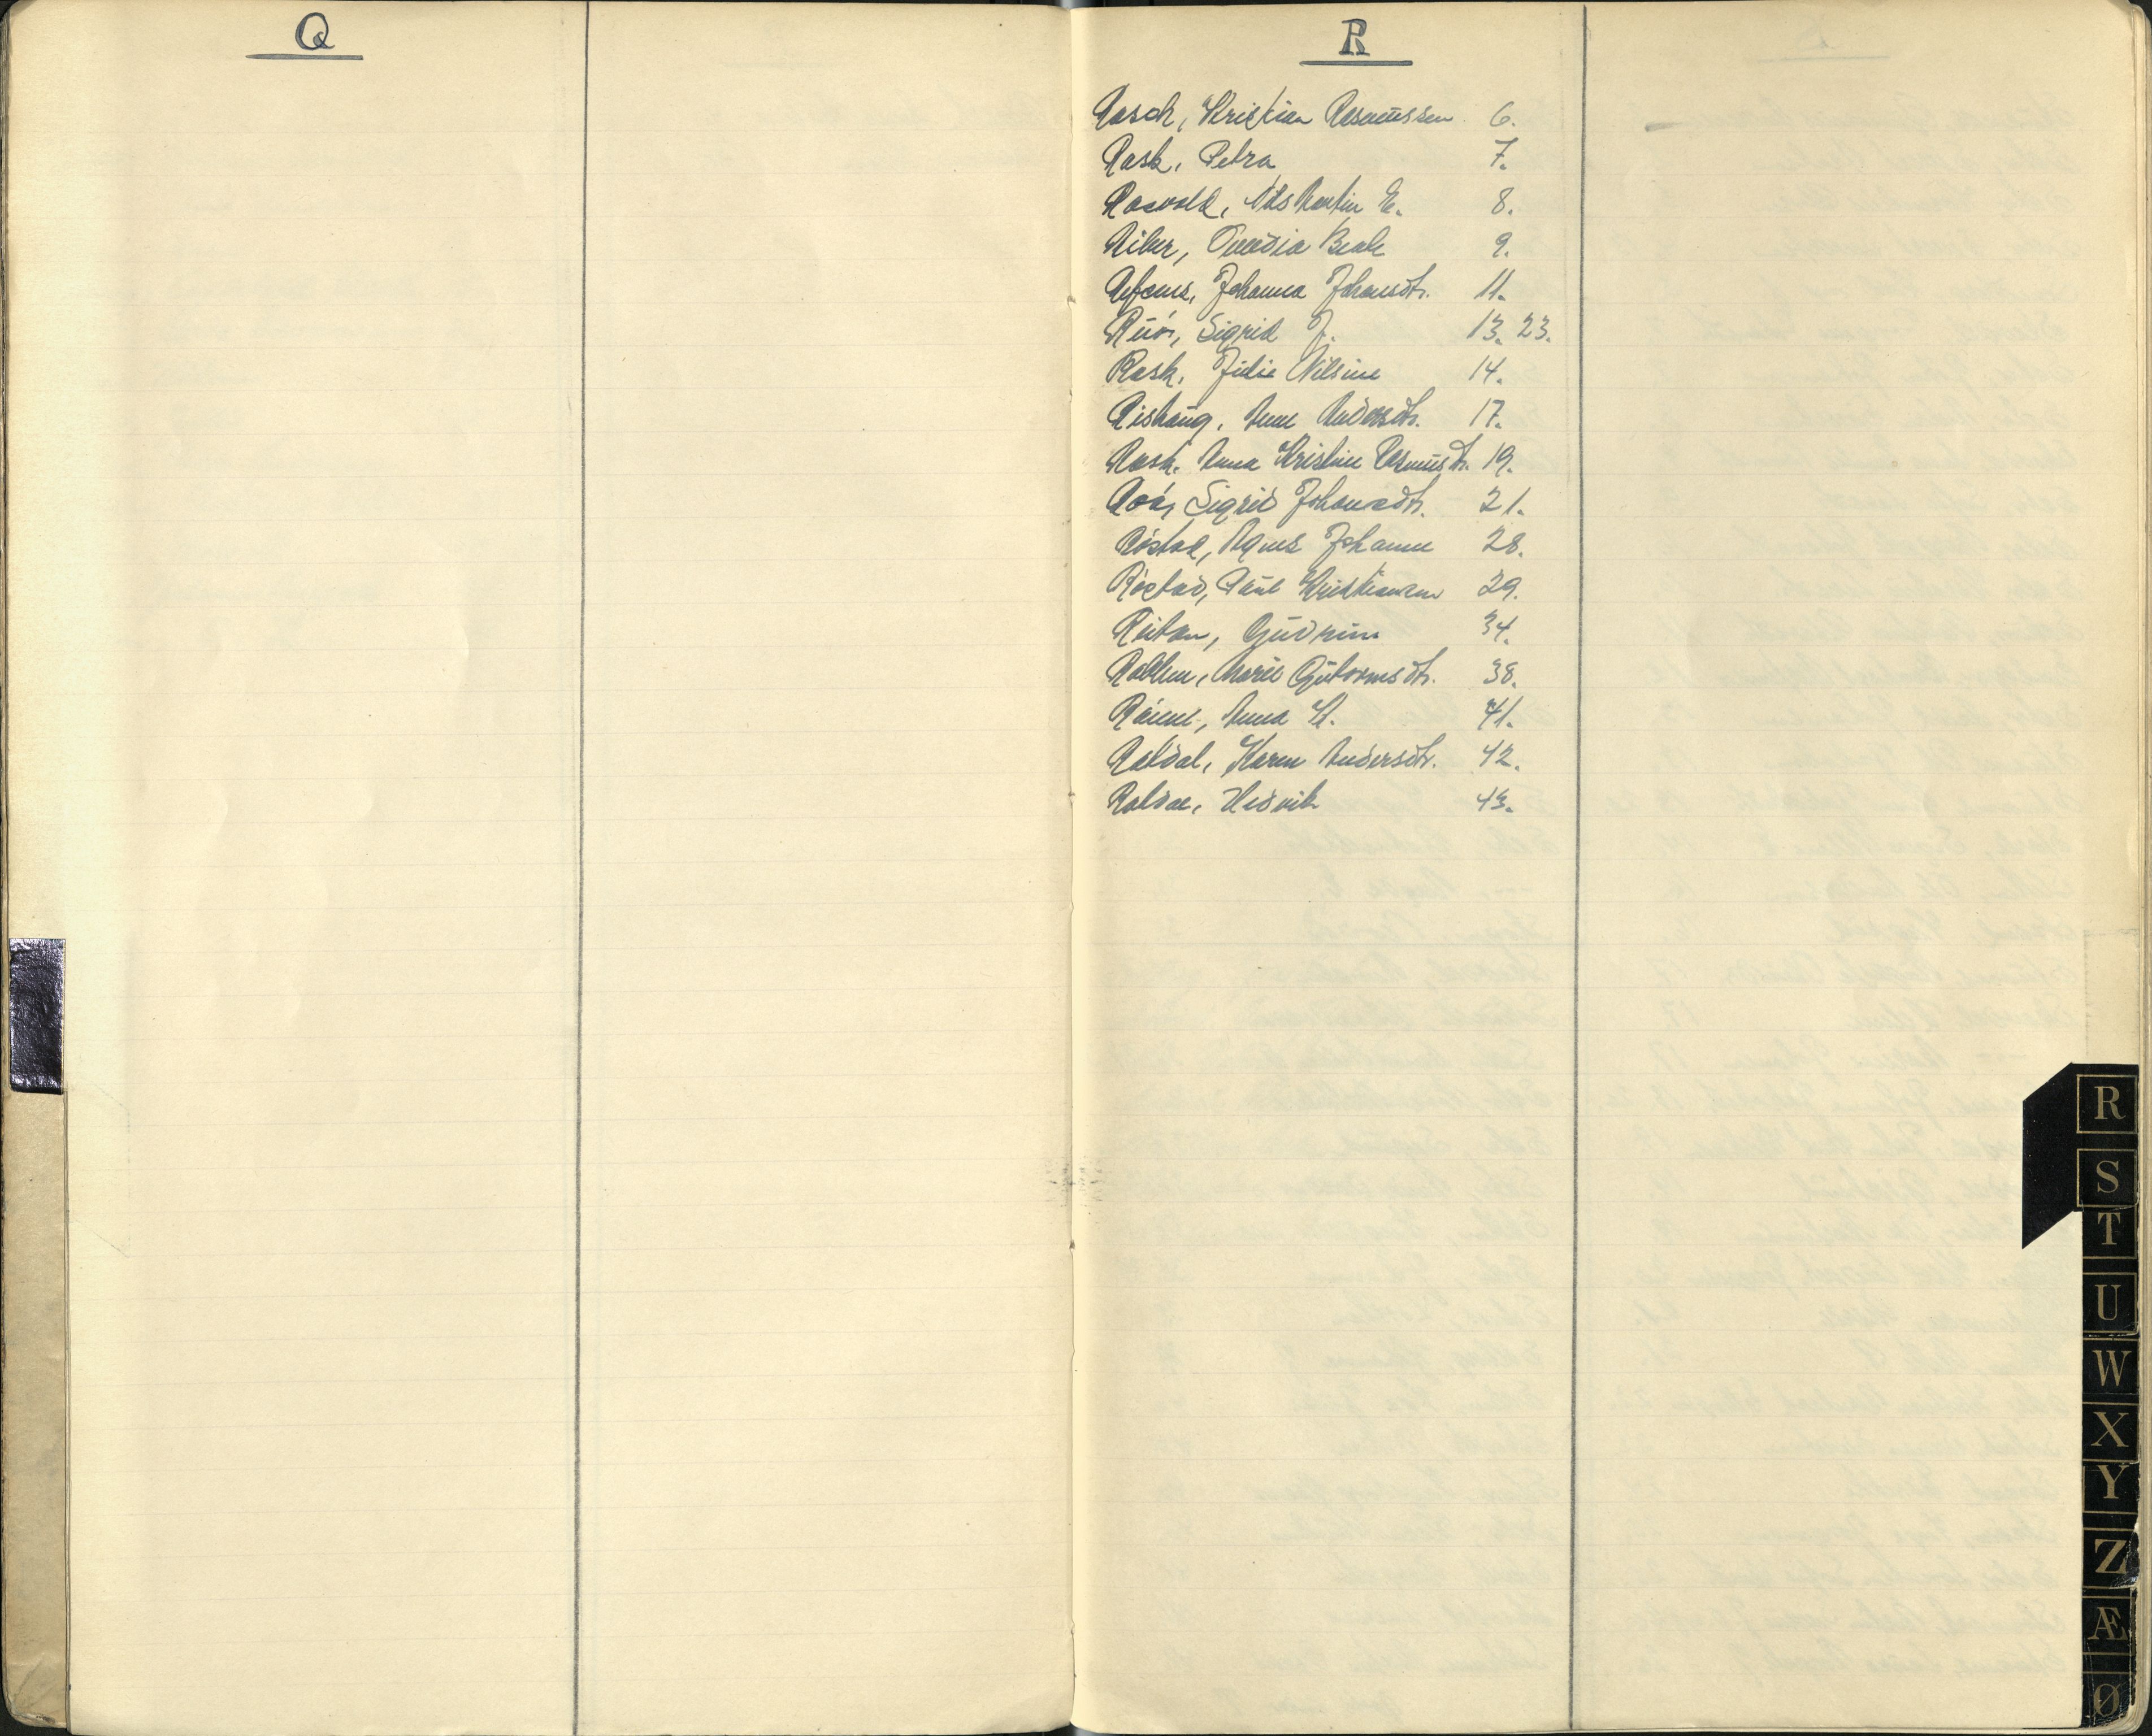 Q
R
Rasch, Kristian Rasmussen 6.
Rask, Petra 7.
Rosvold, Nils Martin E. 8.
Riber, Beate 9.
Refsnes, Johanna Johansdtr. 11.
Sigrid J. 13. 23.
Rask, Julie Nilsine 14.
Rishaug, Anne Andersdtr. 17.
Rask, Anna Kristine Rasmusdtr. 19.
Roá, Sigrid Johansdtr. 21.
Röstad, Agnes Johanne 28.
Röstad, Paul Kristiansen 29.
Reitan, Gudrun 34.
Marit Guttormsdtr. 38.
Anna K. 41.
Raldal, Karen Andersdtr. 42.
Raldal, Hedvik 43.
R
S
T
U
W
X
Y
Z
Æ
Ø